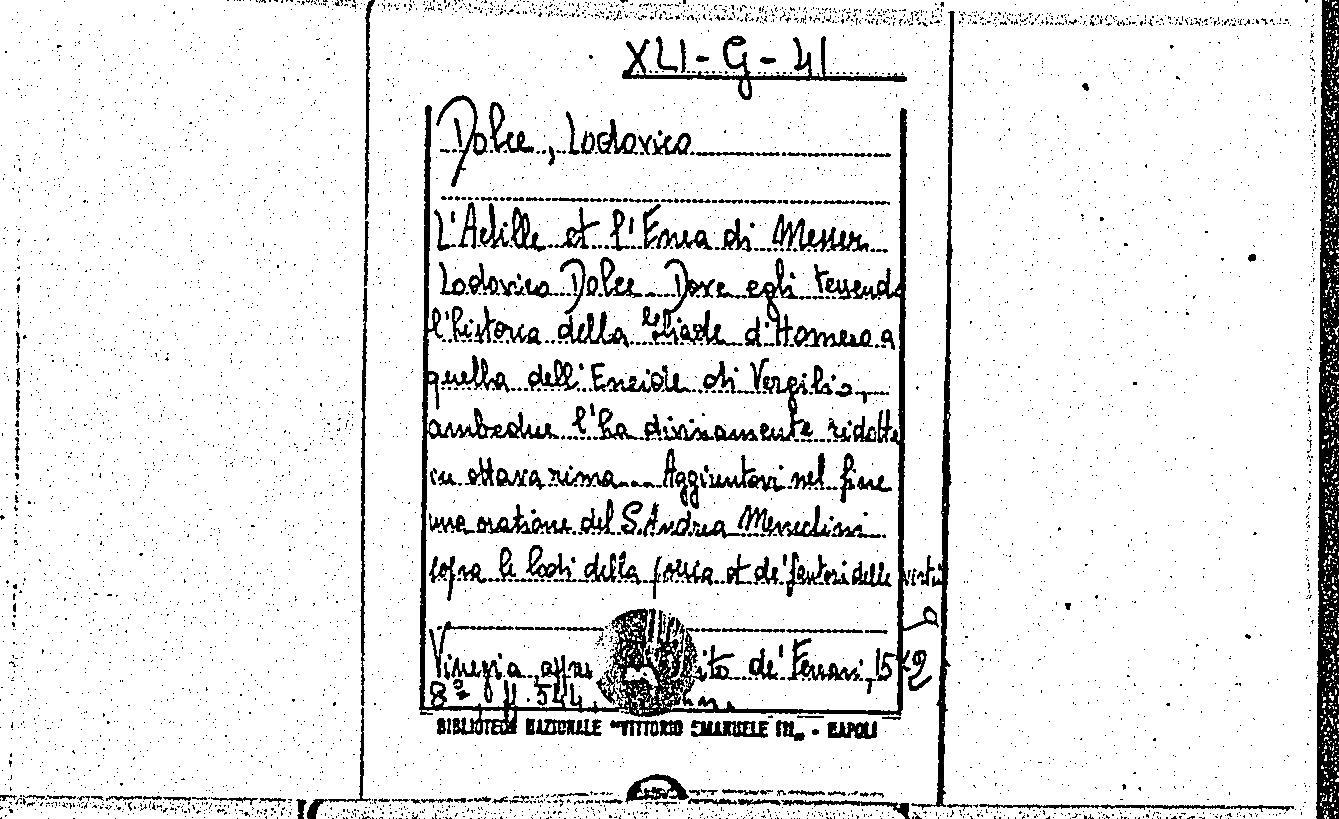 XLI-G-41
Dolce, Lodovico
L'Achille et l'Enea di Messer
Lodovico Dolce. Dove egli tessendo
l'historia della Iliade d'Homero a
quella dell'Eneide di Vergilio,
ambedue l'ha divinamente ridotte
in ottava rima... Aggiuntovi nel fine
una oratione del S. Andrea Menechini
sopra le lodi della poesia et de' fautori delle virtù
Vinegia appr ito de' Ferrari, 1572
8º, ff 544.
BIBLIOTECA NAZIONALE "VITTORIO EMANUELE III„ - NAPOLI